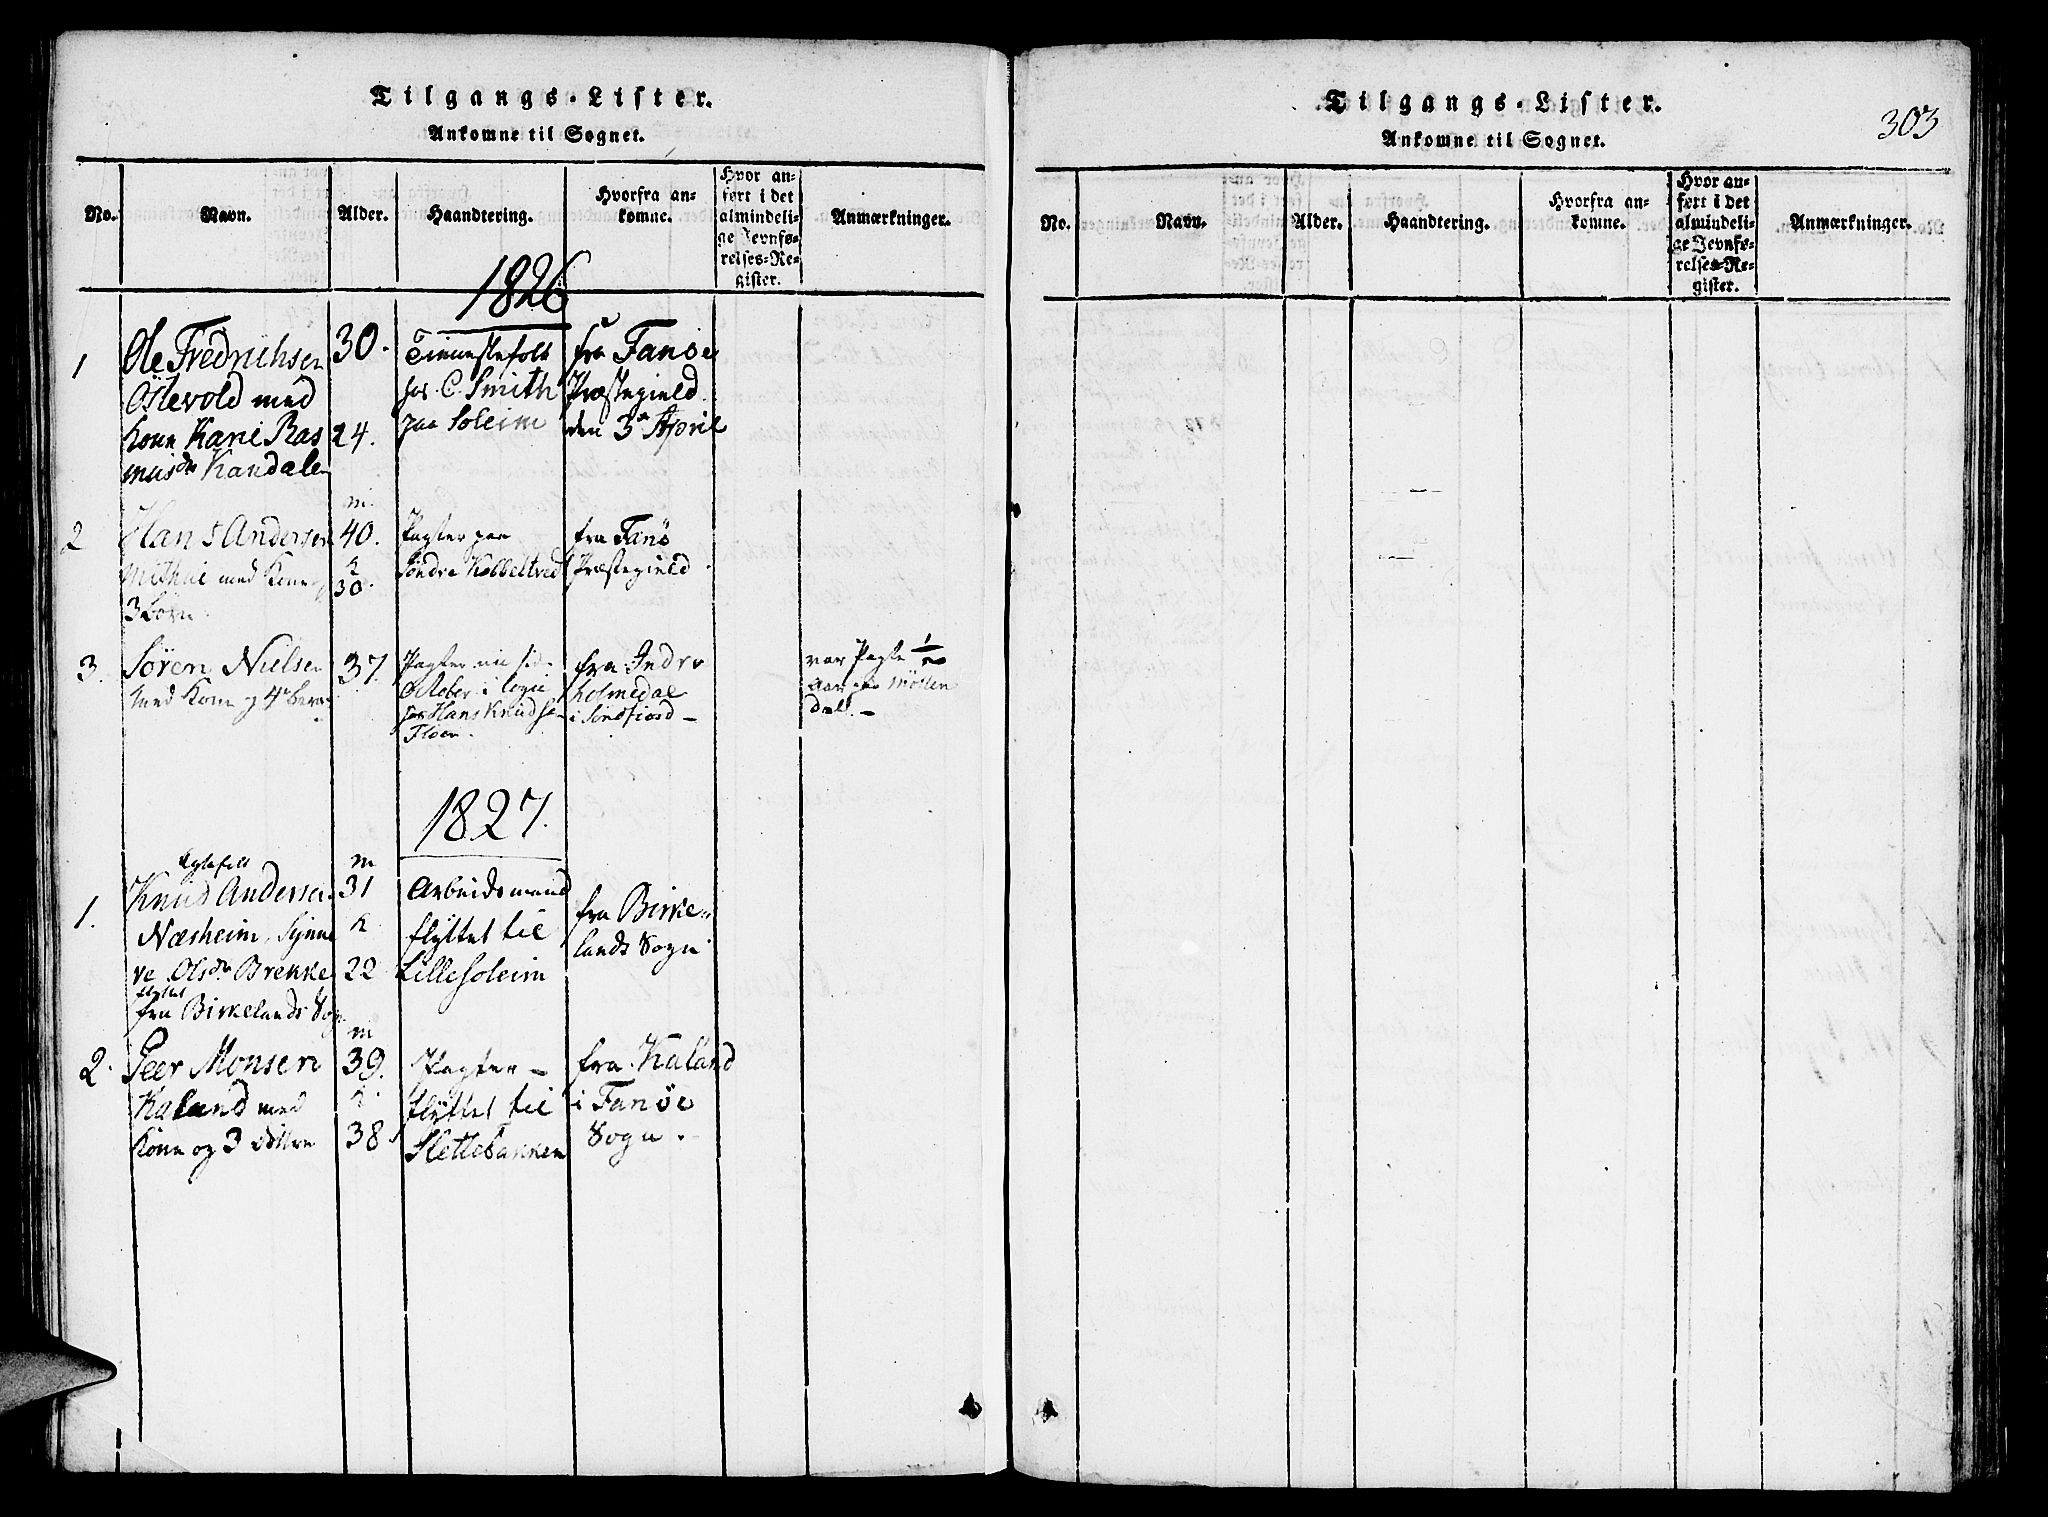 Tilgangs-Lister.
Ankomne til Sognet.
No.
Navn.
Alder.
Haandtering.
Hvorfra an-
komne.
Hvor an-
ført i det
almindeli-
ge Jevnfø-
relses-Re-
gister.
Anmærkninger.
1826
1
Ole Fredrichsen
Östevold med
kone Kari Ras
musdr Kandalen
30.
24.
Tienestefolk
hos C. Smith
paa Soleim
fra Fanöe
Præstegield
den 3n April
2
Hans Andersen
med Kone og
3 Börn
m.
40.
K
30.
Pagter paa
Söndre Kobbeltved
fra Fanö
Præstegield.
3.
Sören Nielsen
med Kone og 4re Börn
37.
October i logie
hos Hans Knudsen
Floen.
fra Indre
holmedal
i Söndfiord
var Pagte 1/2
Aar paa Möllen
dal.
1827.
1.
Egtefolk
Knud Andersen
Næsheim, Synne
ve Olsdr Brekke
flyttet
fra Birkelands Sogn
m
31
K
22
Arbeidsmand
flyttet til
Lillesoleim
fra Birke-
lands Sogn
2.
Peer Monsen
Kaland med
Kone og 3 Döttre
m
39.
K.
38
Pagter
flyttet til
Slettebakken
fra Kaland
i Fanöe
Sogn.
Tilgangs-Lister.
Ankomne til Sognet.
303
No.
Navn.
Alder.
Haandtering.
Hvorfra an-
komne.
Hvor an-
ført i det
almindeli-
ge Jevnfø-
relses-Re-
gister.
Anmærkninger.